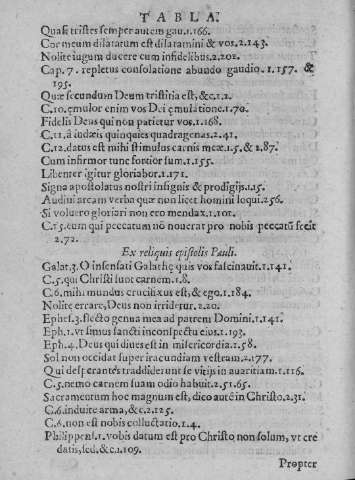 TABLA.
Quasi tristes semper autem gau.1.166.
Cor meum dilatatum est dilatamini & vos.2.143.
Nolite iugum ducere cum infidelibus.2.202.
Cap. 7. repletus consolatione abundo gaudio.1.157. &
195.
Quæ secundum Deum tristitia est, &c.1.2.
C.10. çmulor enim vos Dei çmulatione.1.70.
Fidelis Deus qui non patietur vos.1.168.
C.11.á Iudæis quinquies quadragenas.2.41.
C.12.datus est mihi stimulus carnis meæ.1.5.& 2.87.
Cum infirmor tunc fortior sum.1.155.
Libenter igitur gloriabor.1.171.
Signa apostolatus nostri in signis & prodigijs.1.15.
Audiui arcam verba quæ non licet homini loqui.256.
Si voluero gloriari non ero mendax.1.101.
C.15.eum qui peccatum nõ nouerat pro nobis peccatũ fecit
2.72.
Ex reliquis epistolis Pauli.
Galat.3. O insensati Galathę quis vos fascinauit.1.141.
C.5.qui Christi sunt carnem.1.8.
C.6.mihi mundus crucifixus est, & ego.1.184.
Nolite errare, Deus non irridetur.2.20.
Ephes.3.flecto genua mea ad patrem Domini.1.141.
Eph.1.vt simus sancti in conspectu eius.1.193.
Eph.4.Deus qui diues est in misericordia.1.58.
Sol non occidat super iracundiam vestram.2.177.
Qui desperantes traddiderunt se vitijs in auaritiam.1.116.
C.5.nemo carnem suam odio habuit.2.51.65.
Sacramentum hoc magnum est, dico autē in Christo.2.31.
C.6.induite arma, &c.2.125.
C.6.non est nobis colluctatio.1.4.
Philippens.1.vobis datum est pro Christo non solum, vt cre
datis, sed, &c.1.109.
Propter